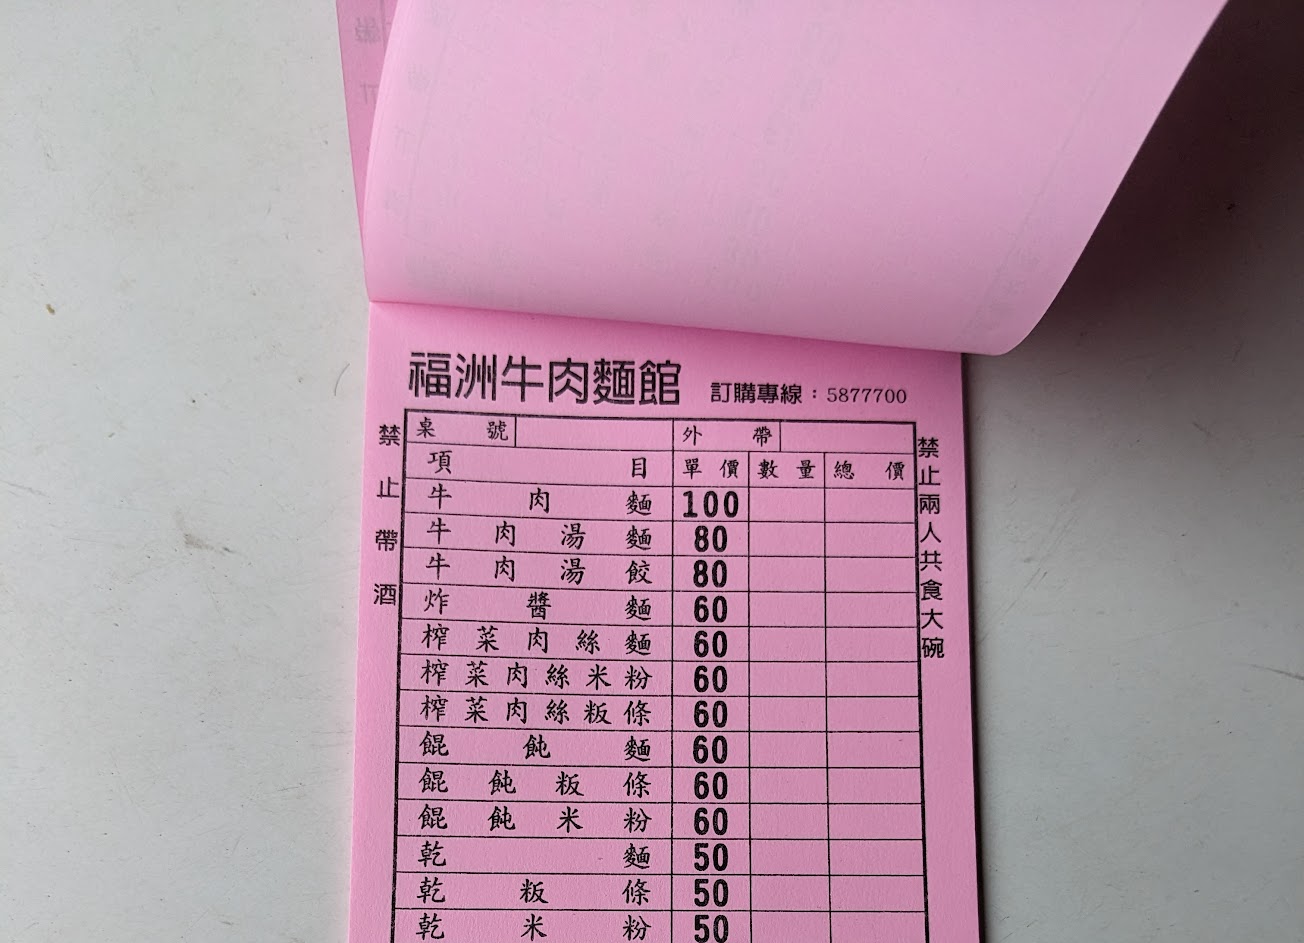 福洲牛肉麵館 訂購專線：5877700
禁止帶酒
桌號 外帶
項目 單價 數量 總價
牛肉麵 100
牛肉湯麵 80
牛肉湯餃 80
炸醬麵 60
榨菜肉絲麵 60
榨菜肉絲米粉 60
榨菜肉絲粄條 60
餛飩麵 60
餛飩粄條 60
餛飩米粉 60
乾麵 50
乾粄條 50
乾米粉 50
禁止兩人共食大碗